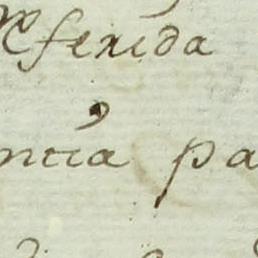 Referida
ntia pa